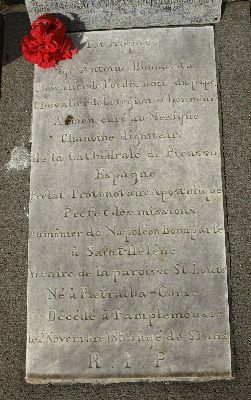 Ici Repose
Antoine Buonavita
Chevalier de l'ordre doré du pape
Chevalier de la légion d'honneur
Ancien curé au Mexique
Chanoine dignitaire
de la Cathédrale de Picasso
Espagne
Prélat Protonotaire Apostolique
Préfet des missions
Aumônier de Napoléon Bonaparte
à Sainte Hélène
Vicaire de la paroisse St. Louis
Né à Pietralba-Corse
Décédé à Pamplemousse
le 2 Novembre 1833 agé de 81 ans
R.I.P